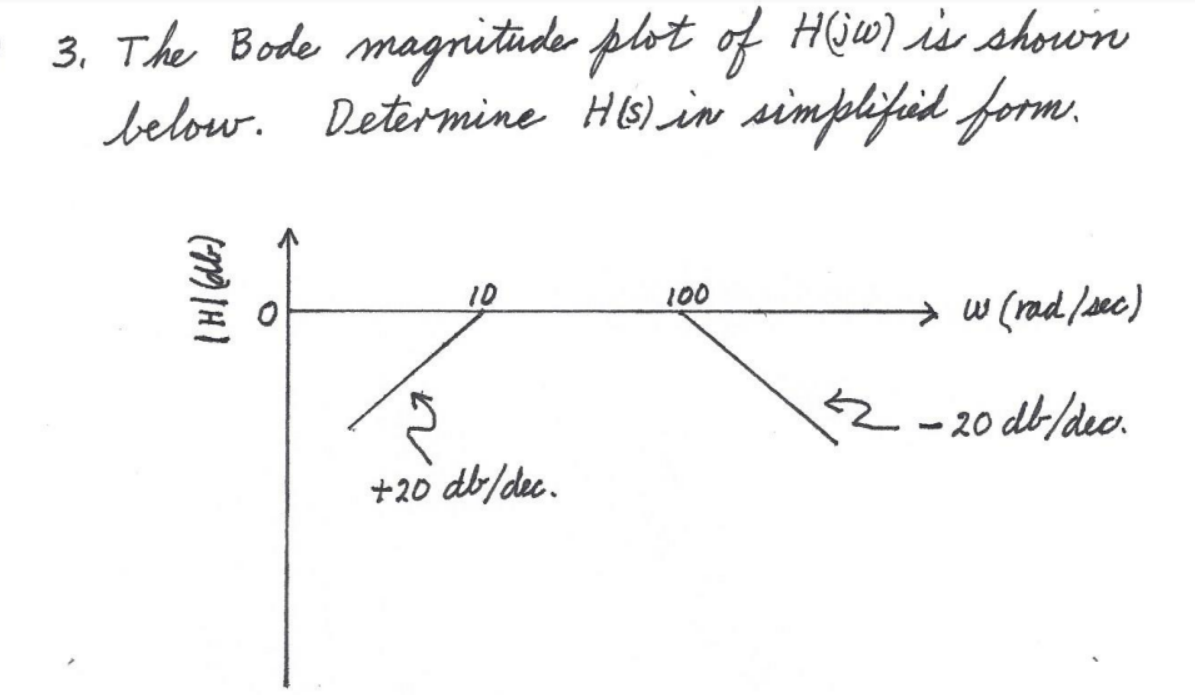 3. The Bode magnitude plot of H(jω) is shown
below. Determine H(s) in simplified form.
|H| (db)
0
10
100
ω (rad/sec)
-20 db/dec.
+20 db/dec.